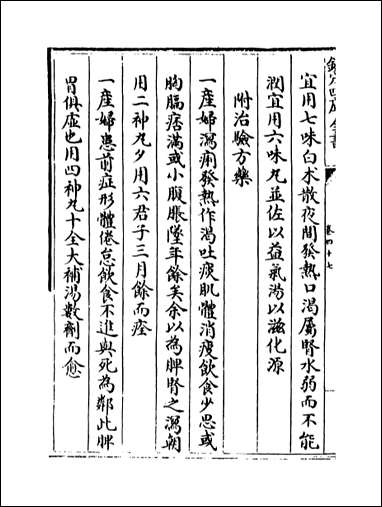 宜用七味白术散夜間發熱口渴屬腎水弱而不能
潤宜用六味丸並佐以益氣湯以滋化源
附治驗方藥
一産婦瀉痢發熱作渴吐痰肌體消瘦飲食少思或
胸膈痞滿或小腹脹墜年餘矣余以為脾腎之瀉朝
用二神丸夕用六君子三月餘而痊
一産婦患前症形體倦怠飲食不進與死為鄰此脾
胃俱虛也用四神丸十全大補湯數劑而愈
卷四十七